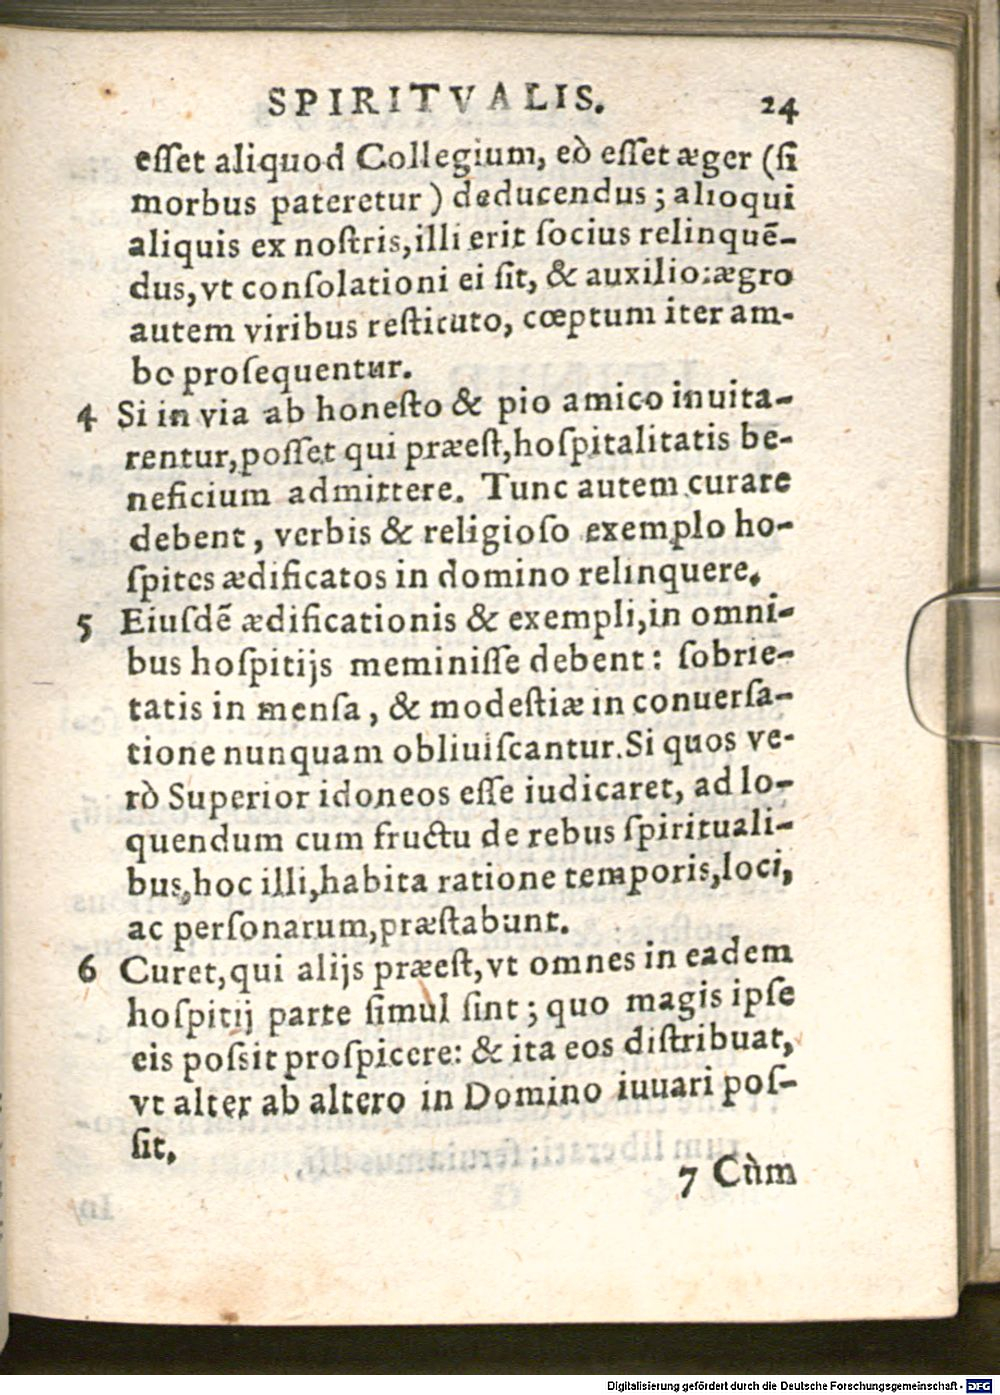 SPIRITVALIS. 24
eſſet aliquod Collegium, eò eſſet æger (ſi
morbus pateretur) deducendus; alioqui
aliquis ex noſtris, illi erit ſocius relinquē-
dus, vt conſolationi ei ſit, & auxilio: ægro
autem viribus reſtituto, cœptum iter am-
bo proſequentur.
4 Si in via ab honeſto & pio amico inuita-
rentur, poſſet qui præeſt, hoſpitalitatis be-
neficium admittere. Tunc autem curare
debent, verbis & religioſo exemplo ho-
ſpites ædificatos in domino relinquere.
5 Eiuſdē ædificationis & exempli, in omni-
bus hoſpitijs meminiſſe debent: ſobrie-
tatis in menſa, & modeſtiæ in conuerſa-
tione nunquam obliuiſcantur. Si quos ve-
rò Superior idoneos eſſe iudicaret, ad lo-
quendum cum fructu de rebus ſpirituali-
bus, hoc illi, habita ratione temporis, loci,
ac perſonarum, præſtabunt.
6 Curet, qui alijs præeſt, vt omnes in eadem
hoſpitij parte ſimul ſint; quo magis ipſe
eis poſsit proſpicere: & ita eos diſtribuat,
vt alter ab altero in Domino iuuari poſ-
ſit.
7 Cùm
Digitalisierung gefördert durch die Deutsche Forschungsgemeinschaft - DFG